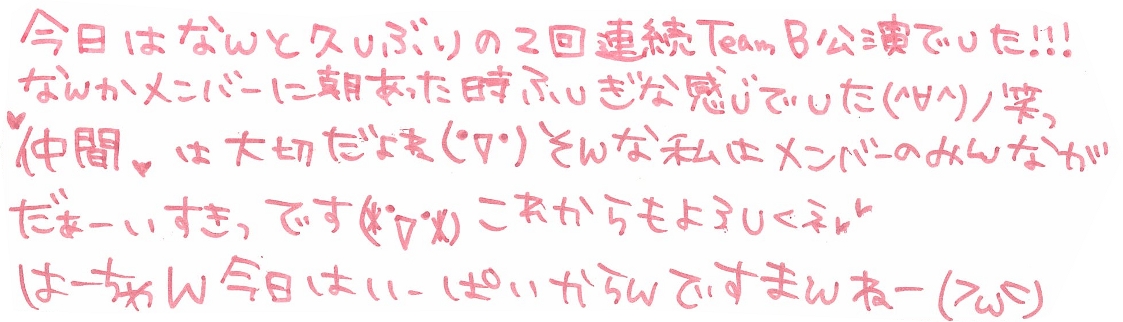 今日はなんと久しぶりの2回連続TeamB公演でした!!!
なんかメンバーに朝あった時ふしぎな感じでした(^∀^)ノ笑っ
♥仲間♥は大切だよね(°▽°)そんな私はメンバーのみんなが
だぁーいすきっです(*°▽°*)これからもよろしくねvv
はーちゃん今日はいーぱいからんですまんねー(>ω<)